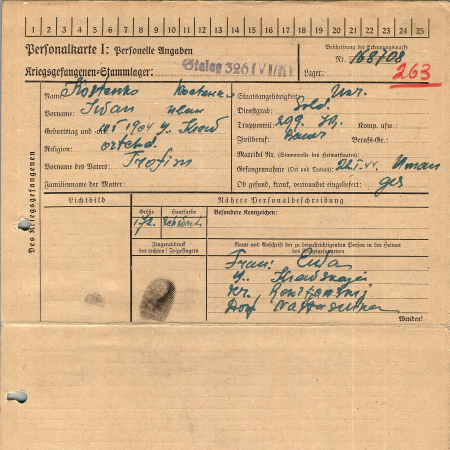 1 2 3 4 5 6 7 8 9 10 11 12 13 14 15 16 17 18 19 20 21 22 23 24 25
Personalkarte I: Personelle Angaben
Beschriftung der Erkennungsmarke
Nr. 168708
Kriegsgefangenen-Stammlager: Stalag 326 (VI/K)
Lager: 263
Des Kriegsgefangenen
Name: Kostenko
Vorname: Iwan
Geburtstag und -ort: 1904
Religion: ortod.
Vorname des Vaters: Trofim
Familienname der Mutter:
Staatsangehörigkeit: Ukr.
Dienstgrad: Sold.
Truppenteil: 299. Komp. usw.:
Zivilberuf: Bauer Berufs-Gr.:
Matrikel Nr. (Stammrolle des Heimatstaates)
Gefangennahme (Ort und Datum): Uman
Ob gesund, krank, verwundet eingeliefert: ges
Lichtbild
Nähere Personalbeschreibung
Größe
Haarfarbe
Besondere Kennzeichen:
172 schwarz
Fingerabdruck
des rechten! Zeigefingers
Name und Anschrift der zu benachrichtigenden Person in der Heimat
des Kriegsgefangenen
Frau:
Wenden!